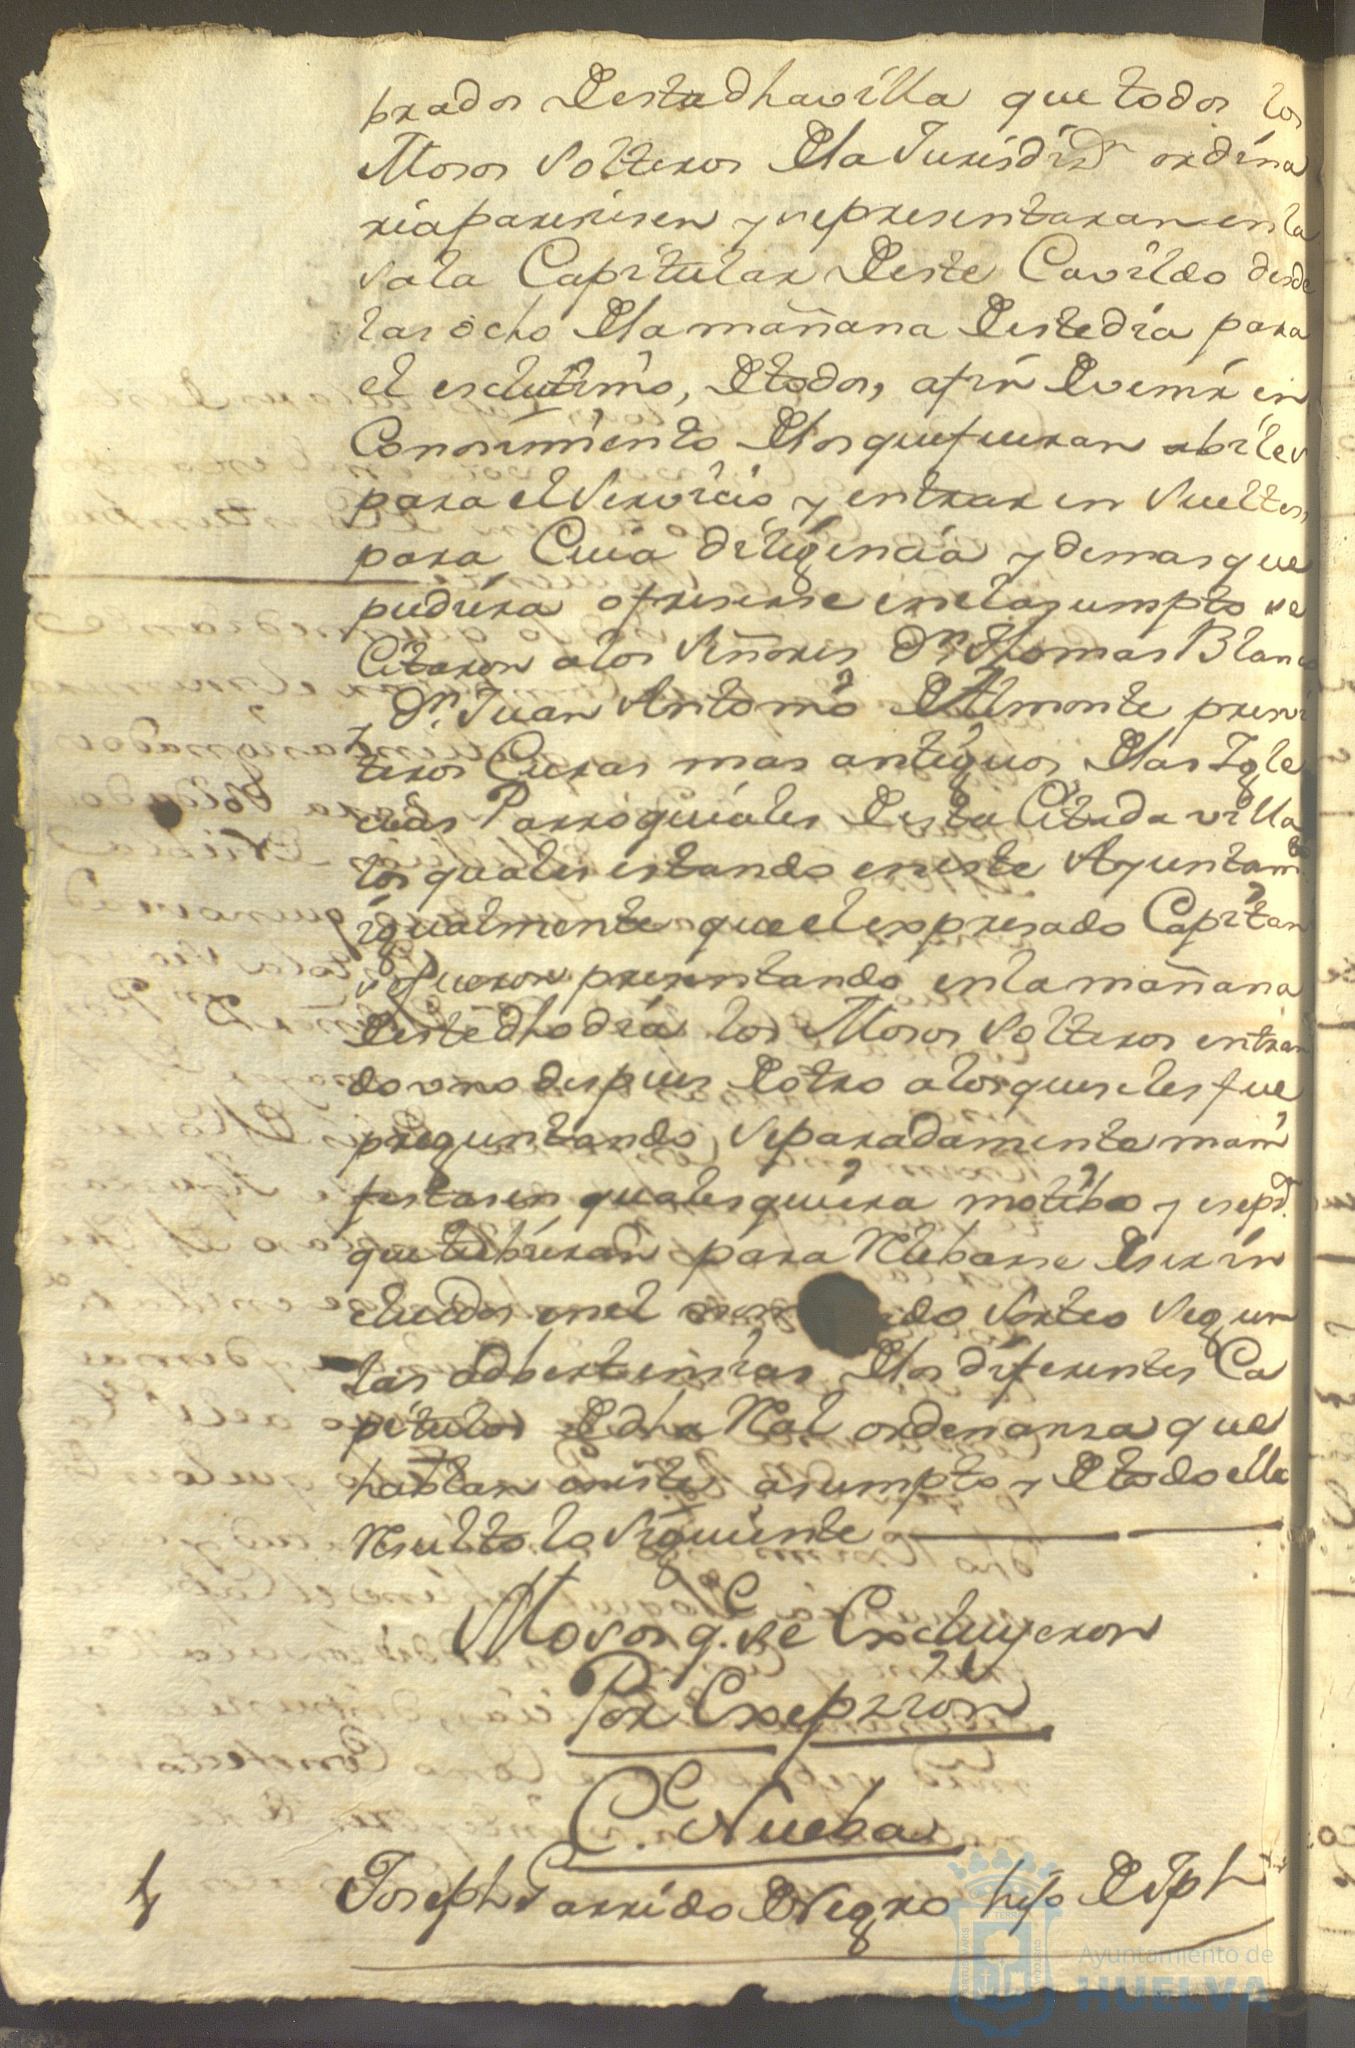 prados Destadhavilla que todos los
Mosos Solteros Dla Jurisdizn ordina
ria paresiesen y se presentaran en la
Sala Capitular Deste Cavildo desde
las ocho Dla mañana Deste dia para
el esclutimio, D todos, afin De venir en
Conosimiento Dlos que fueran abiles
para el Servicio y entrar en Sueltes
para Cuia diligencia y demas que
pudiera ofreserse en el asumpto se
Citaron a los Señores Dn. Thomas Blanco
y Dn. Juan Antonio D Almonte presvi
teros Curas mas antiguos Dlas Igle
cias Parroquiales Desta Citada villa
los quales estando en este Ayuntamto
igualmente que el expresado Capitan
se fueron presentando en la mañana
Deste dho dia los Mosos Solteros entran
do uno despues D otro a los que se les fue
preguntando separadamente mani
festasen qualesquiera motibo y esepn.
que tubieran para Relebarse D ser in
cluidos en el do Sorteo Segun
las adbertensias Dlos diferentes Ca
pitulos D dha Ral ordenansa que
hablan en este asumpto y D todo ello
Resulto lo Siguiente
Mosos q. se Excluyeron
Por Exepzion
C.e Nueba
Joseph Garrido D Negro hijo D Jph
Ayuntamiento de
HUELVA